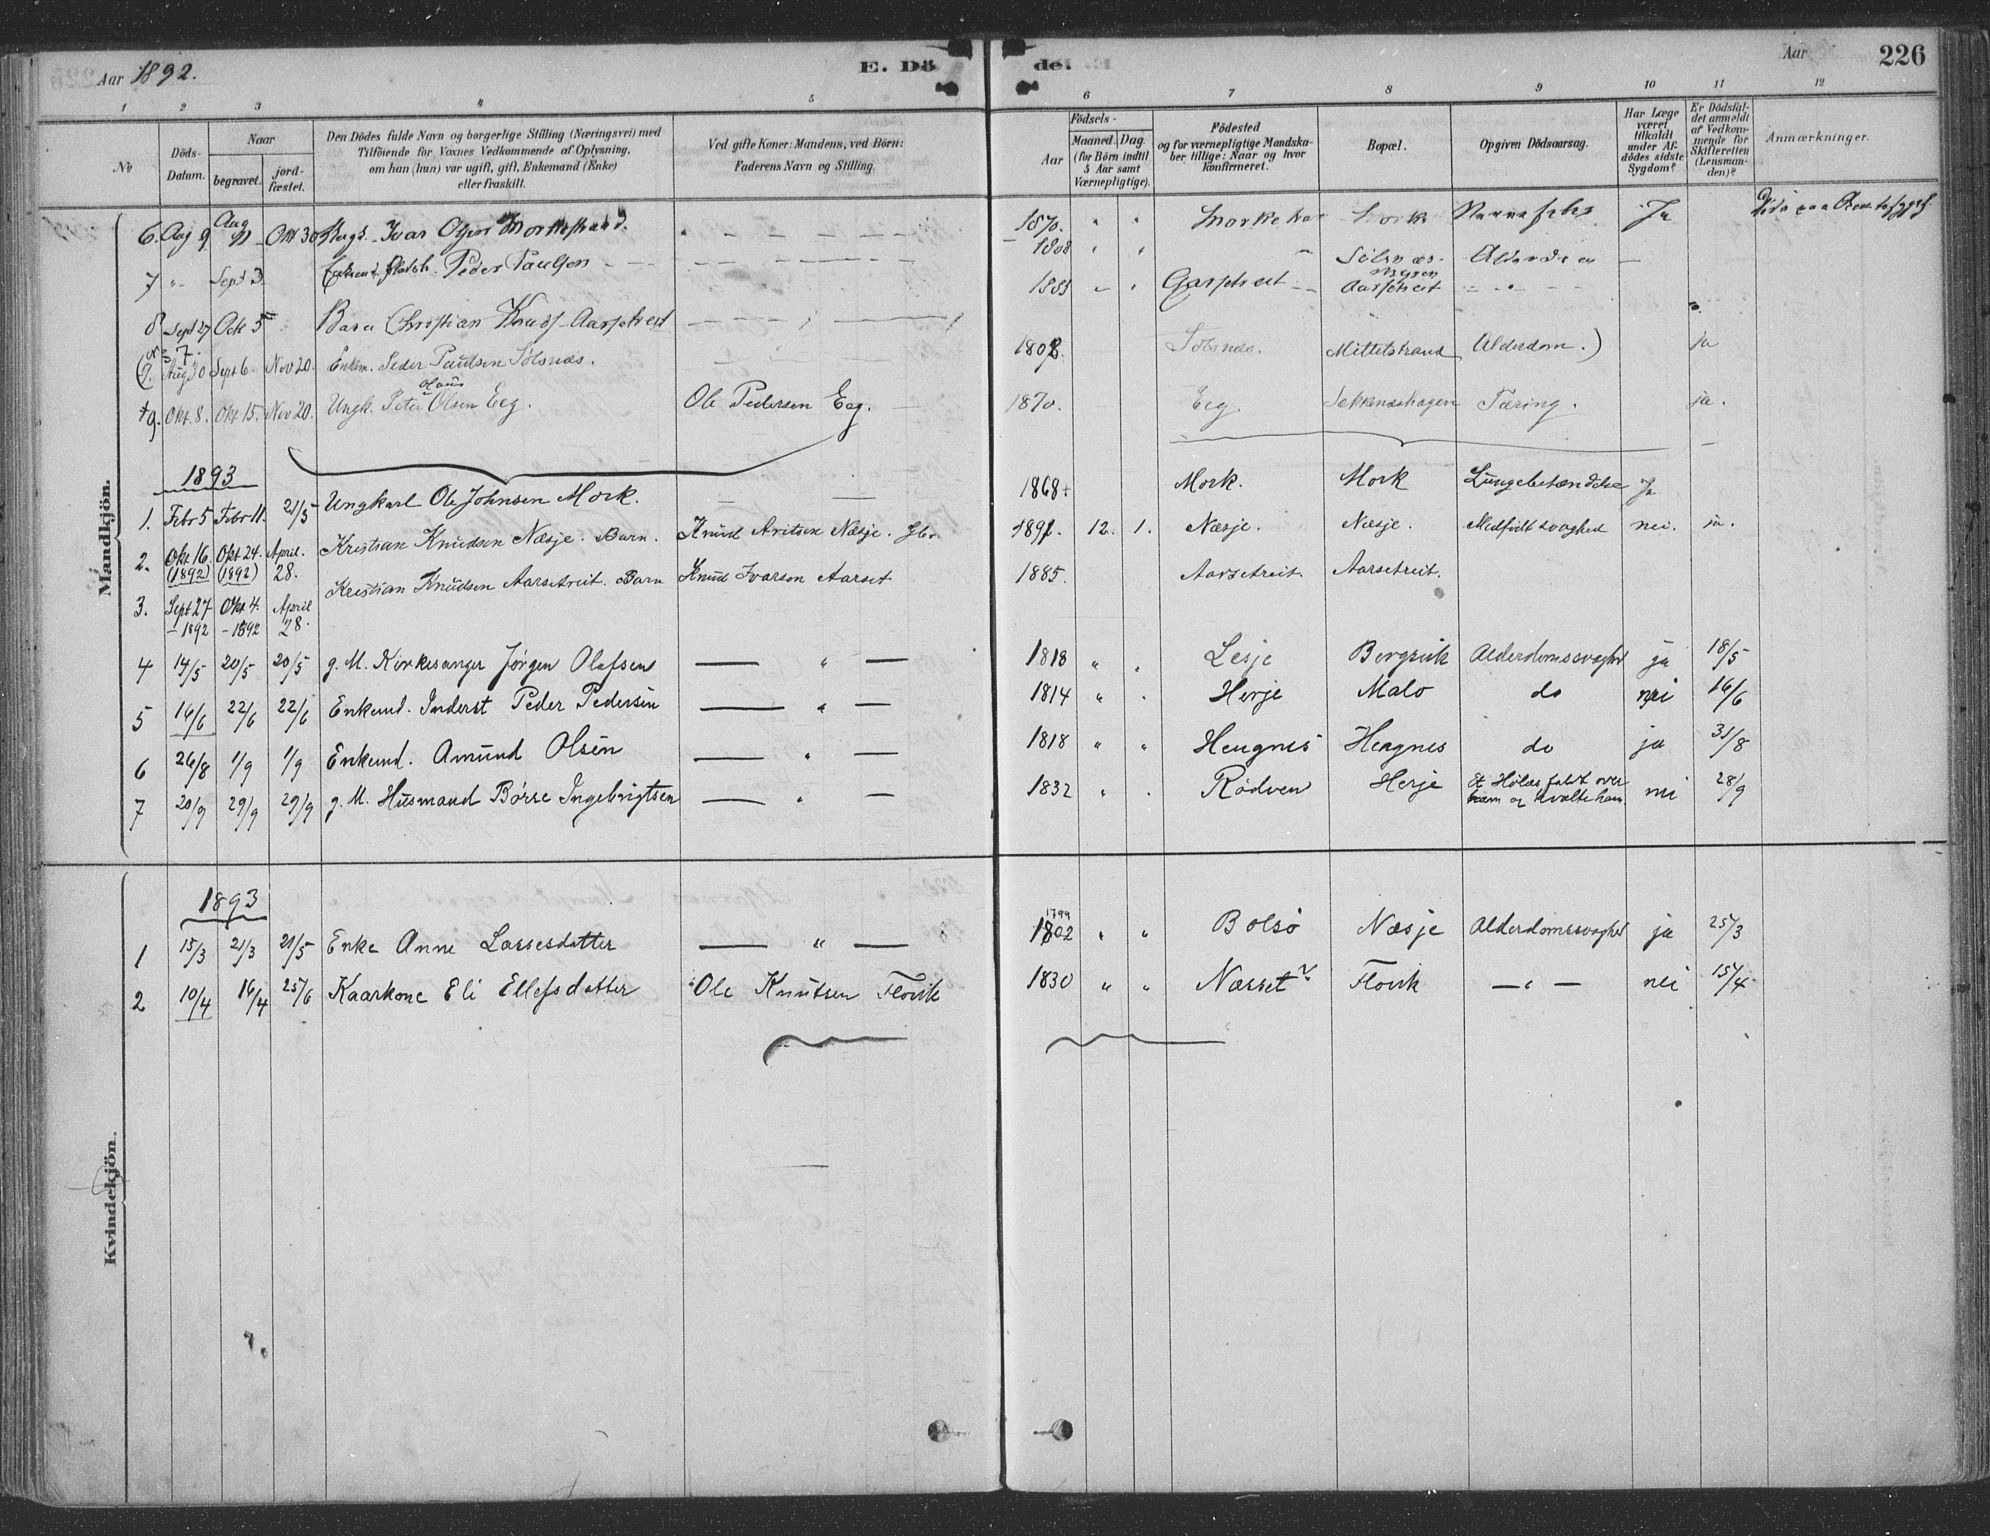 Aar 1892.
E. Dö
de.
Aar
226
1 2 3 4 5 6 7 8 9 10 11 12
No
Döds-Datum.
Naar
begravet.
jord-fæstet.
Den Dödes fulde Navn og borgerlige Stilling (Næringsvei) med
Tilföiende for Voxnes Vedkommende af Oplysning,
om han (hun) var ugift, gift, Enkemand (Enke)
eller fraskilt.
Ved gifte Koner: Mandens, ved Börn:
Faderens Navn og Stilling.
Födsels-
Aar
Maaned. Dag.
(for Börn indtil
5 Aar samt
Værnepligtige).
Födested
og for værnepligtige Mandska-
ber tillige: Naar og hvor
konfirmeret.
Bopæl.
Opgiven Dödsaarsag.
Har Læge
været
tilkaldt
under Af-
dödes sidste
Sygdom?
Er Dödsfal-
det anmeldt
af Vedkom-
mende for
Skifteretten
(Lensman-
den)?
Anmærkninger.
Mandkjön.
6. Aug 9. Aug Okt 30 Ivar 1870. " " Mork Ja
7 " Sept 3 Peder Paulsen 1808 " " Sølsnæs- Alderdom —
8 Sept 27 Octr 5 Barn Christian Knuds. Aarsetreit 1885 Aarsetreit
9. Aug 30 Sept 6. Nov 20. Enkem. Peder Paulsen Sølsnæs. 1808. Sølsnæs. Mittetstrand Alderdom.) ja
9. Okt. 8. Okt 15. Nov 20. Ungk. Peter Olaus Olsen Eeg. Ole Pedersen Eeg. 1870. Eeg. Sekkenæshagen Tæring. ja.
1893
1. Febr 5 Febr 11. 21/5 Ungkarl Ole Johnsen Mork. 1868 Mork. Mork Lungebetændelse Ja
2. Okt 16. (1892) Okt 24 (1892) April. 28. Kristian Knudsen Næsje. Barn. Knud Næsje. 1891. 12. 1. Næsje. Næsje. Medfödt svaghed nei. ja.
3. Sept 27 – 1892 Okt 4. – 1892 April 28. Kristian Knudsen Aarsetreit. Barn Knud Ivarson Aarset 1885. Aarsetreit. Aarsetreit.
4 14/5 20/5 20/5 g. M. Kirkesanger Jørgen Olafsen — " — 1818 " " Lesje Bergvik Alderdomssvaghed ja 18/5
5 16/6 22/6 22/6 Enkemd. Inderst Peder Pedersen — " — 1814 " " Herje Malo do nei 16/6
6 26/8 1/9 1/9 Enkemd. Amund Olsen — " 1818 " " Hengnes Hengnes do ja 31/8
7 20/9 29/9 29/9 g. M. Husmand Børre Ingebrigtsen — " — 1832 " " Rødven Herje Et Hølæs faldt over ham og kvalte ham nei 28/9
Kvindekjön.
1893
1 15/3 21/3 21/5 Enke Anne Lassesdatter — " — 1799 1802 " " Bolsø Næsje Alderdomssvaghed ja 25/3
2 10/4 16/4 25/6 Kaarkone Eli Ellefsdatter Ole Knutsen Flovik 1830 " " Næsset Flovik — " — nei 15/4